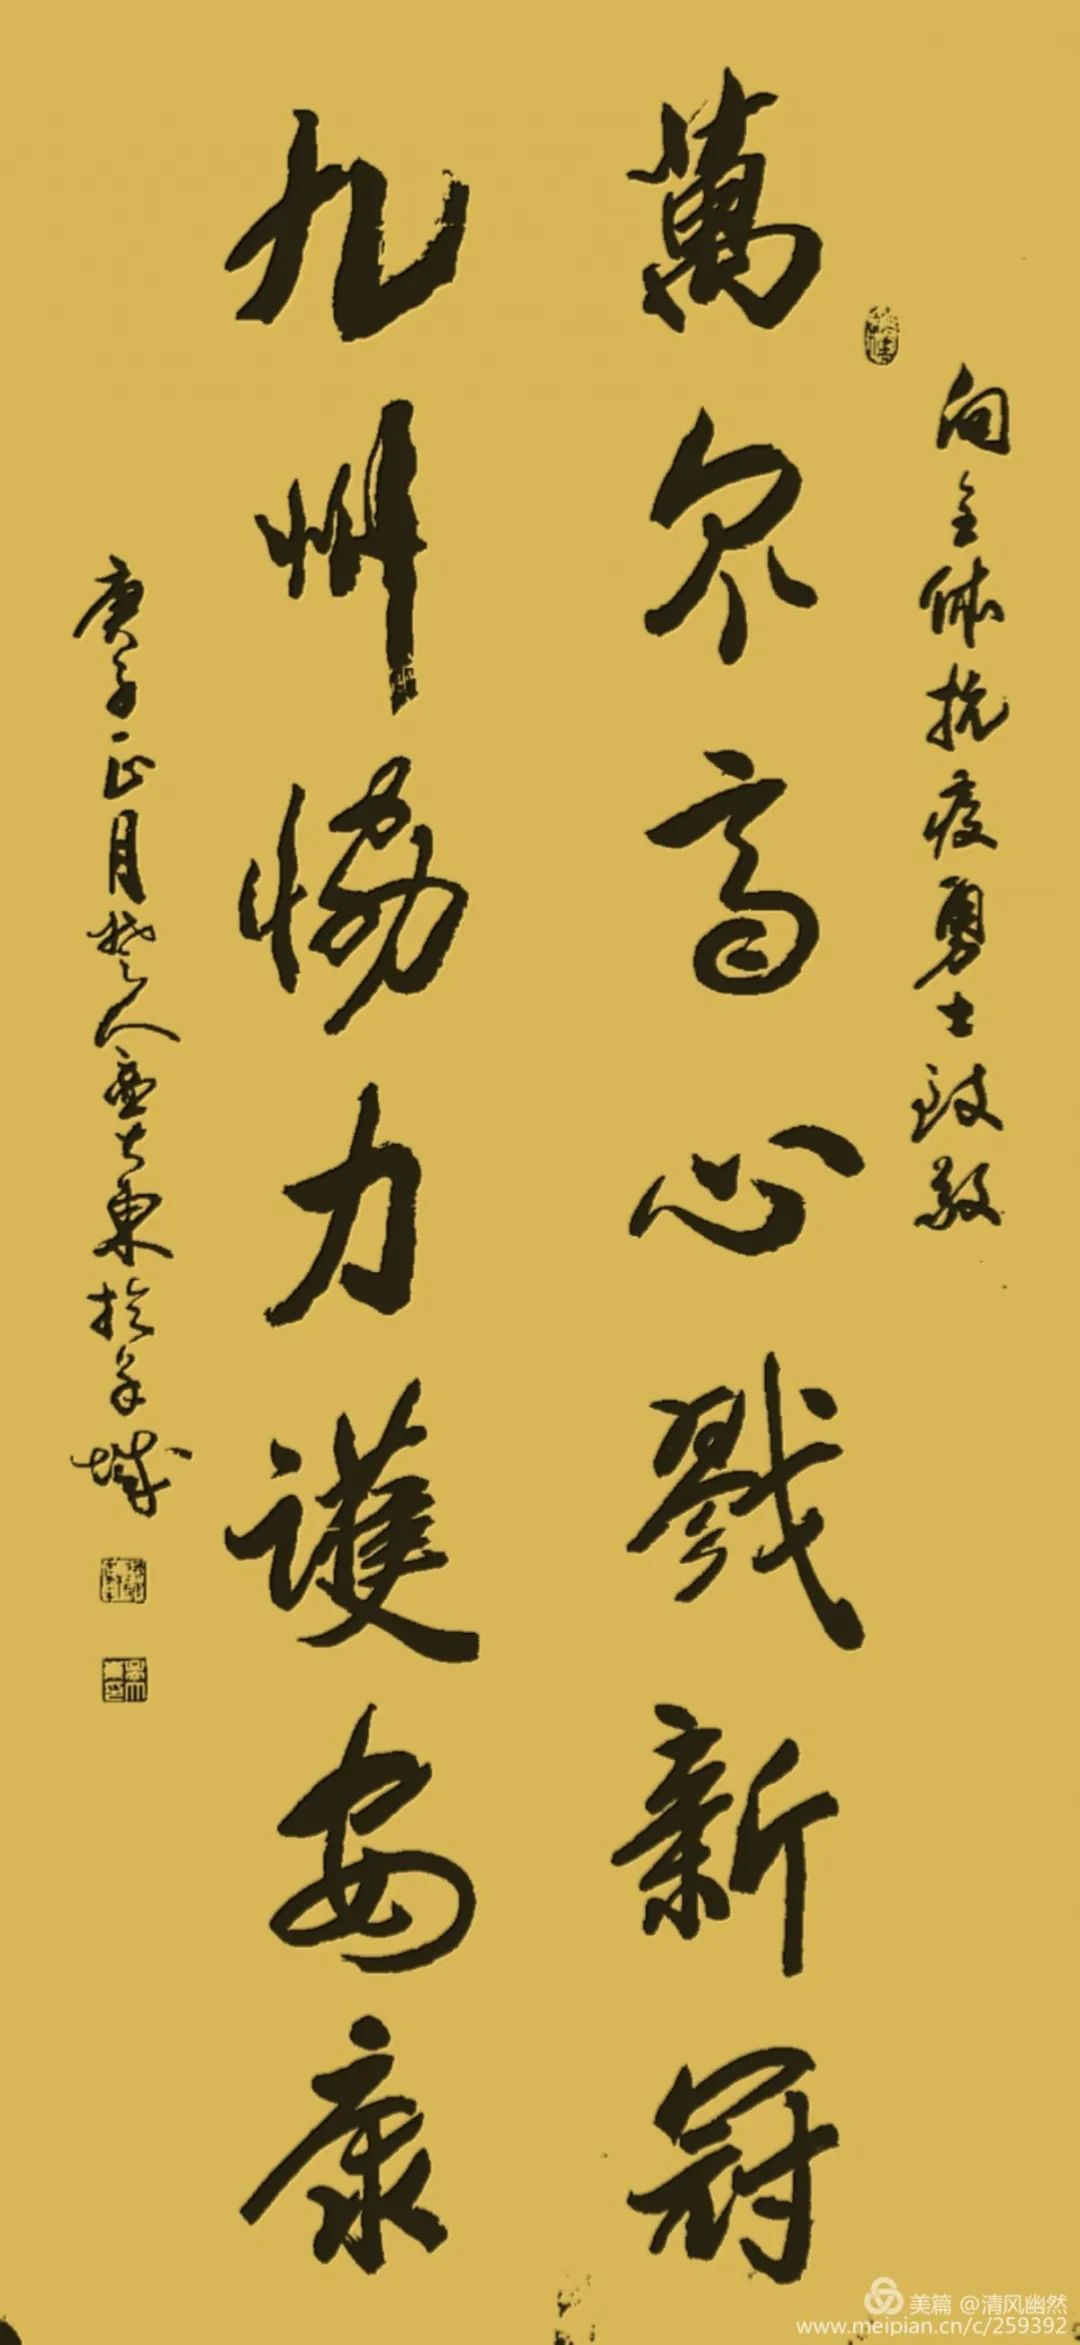 向全体抗疫勇士致敬
萬众齐心戮新冠
九州恊力護安康
庚子正月楚人東於羊城
美篇 @清风幽然
www.meipian.cn/c/259392